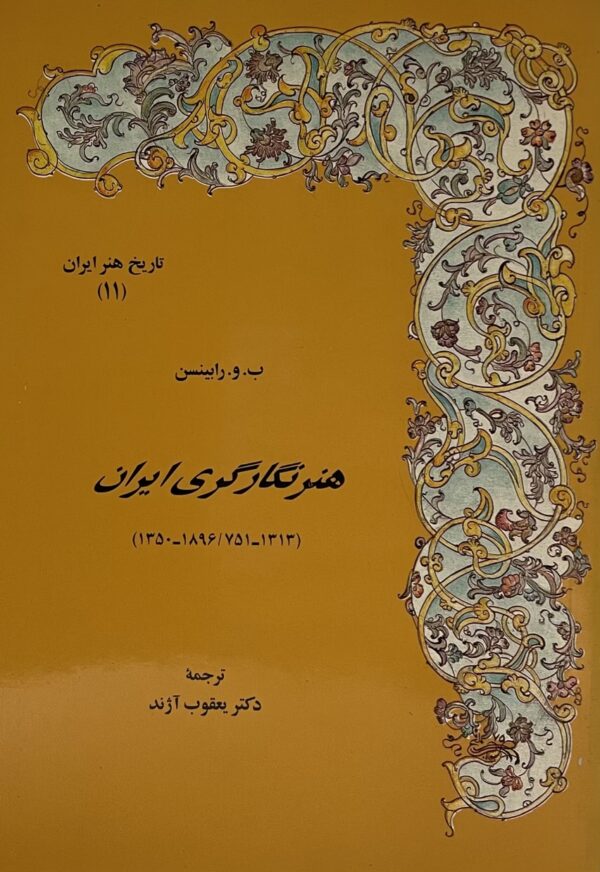 تاریخ هنر ایران
(۱۱)
ب. و. رابینسن
هنر نگارگری ایران
(۱۳۱۳-۷۵۱/۱۸۹۶-۱۳۵۰)
ترجمهٔ
دکتر یعقوب آژند